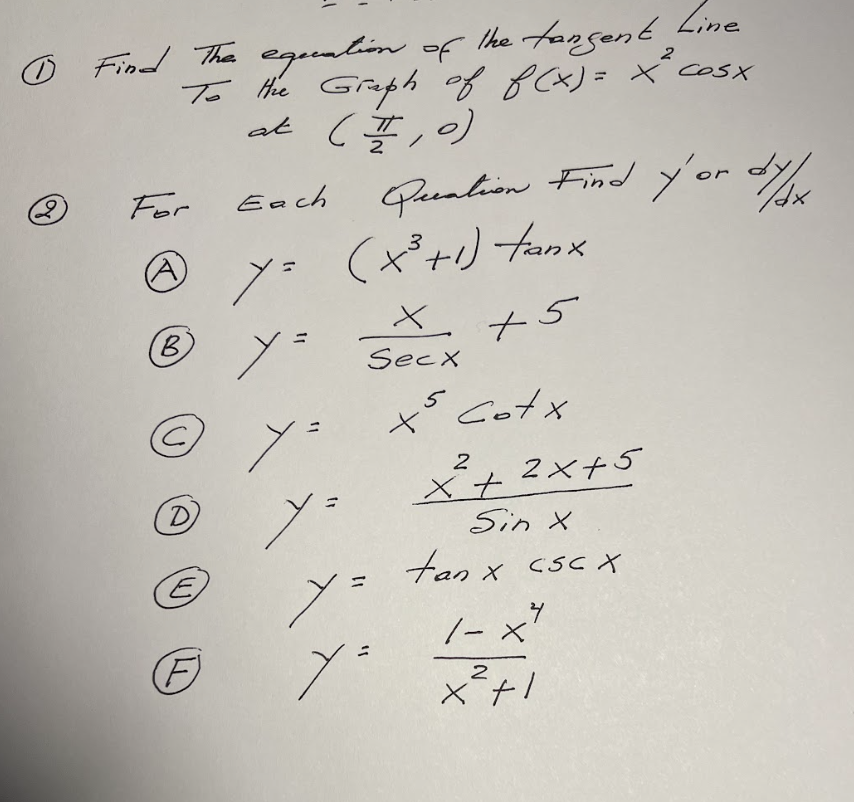 ① Find The equation of the tangent Line
To the Graph of f(x) = x² cosx
at (π/2, 0)
② For Each Quuation Find y' or dy/dx
Ⓐ y = (x³+1) tanx
Ⓑ y = x/secx + 5
Ⓒ y = x⁵ cotx
Ⓓ y = (x² + 2x+5)/Sin x
Ⓔ y = tan x csc x
Ⓕ y = (1-x⁴)/(x²+1)